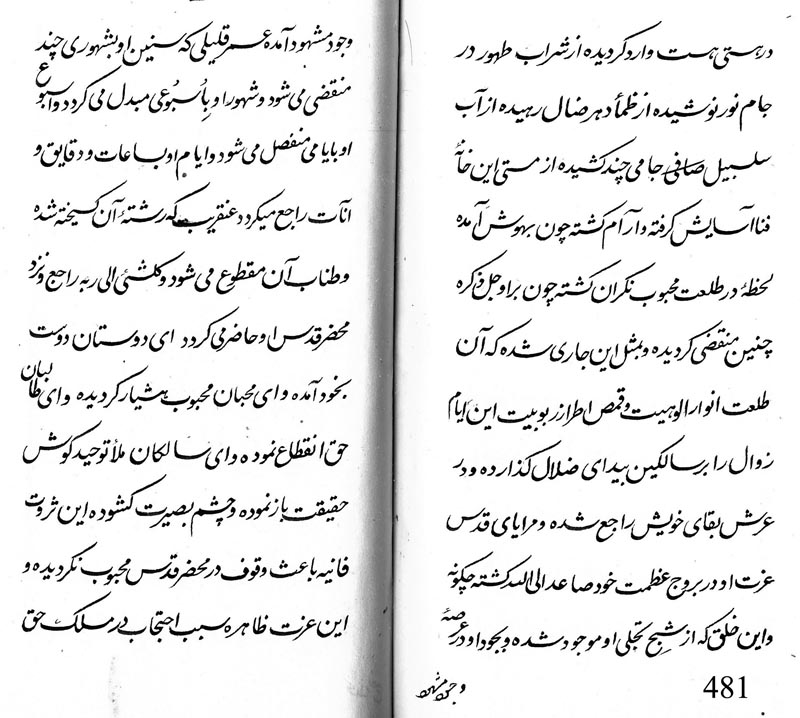 در هستی هست وارد گردیده از شراب طهور در
جام نور نوشیده از ظمأ دهر ضال رهیده از آب
سلسبیل صافی جامی چند کشیده از مستی این خانهٔ
فنا آسایش گرفته و آرام گشته چون بهوش آمده
لحظهٔ در طلعت محبوب نگران گشته چون براو جل ذکره
چنین منقضی گردیده و بمثل این جاری شده که آن
طلعت انوار الوهیت و قمص اطراز ربوبیت این ایام
زوال را بر سالکین بیدای ضلال گذارده و در
عرش بقای خویش راجع شده و مرایای قدس
عزت او در بروج عظمت خود صاعد الی الله گشته چگونه
و این خلق که از شبح تجلی او موجود شده و بجود او در عرصهٔ
وجود مشهود
481
وجود مشهود آمده عمر قلیلی که سنین او بشهوری چند
منقضی می شود و شهور او بأسبوعی مبدل می گردد و اسبوع
او بایامی منفصل می شود و ایام او بساعات و دقایق و
انآت راجع میگردد عنقریب که رشتهٔ آن گسیخته شده
و طناب آن مقطوع می شود و کلشئ الی ربه راجع و نزد
محضر قدس او حاضر می گردد ای دوستان دوست
بخود آمده و ای محبان محبوب هشیار گردیده و ای طالبان
حق انقطاع نموده و ای سالکان ملأ توحید گوش
حقیقت باز نموده و چشم بصیرت گشوده این ثروت
فانیه باعث وقوف در محضر قدس محبوب نگردیده و
این عزت ظاهره سبب احتجاب در ملک حق